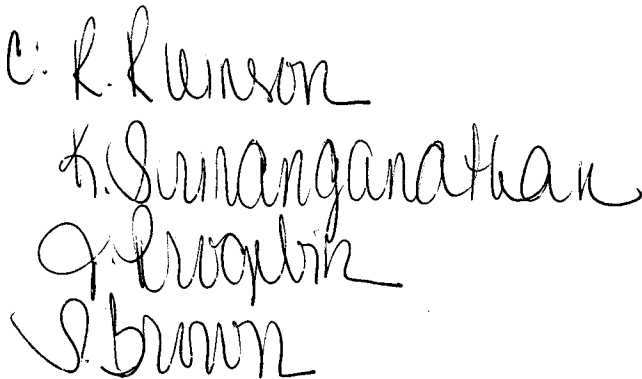 c: R. Rleinson
K. Sriranganathan
J. Progelhin
S. Brown